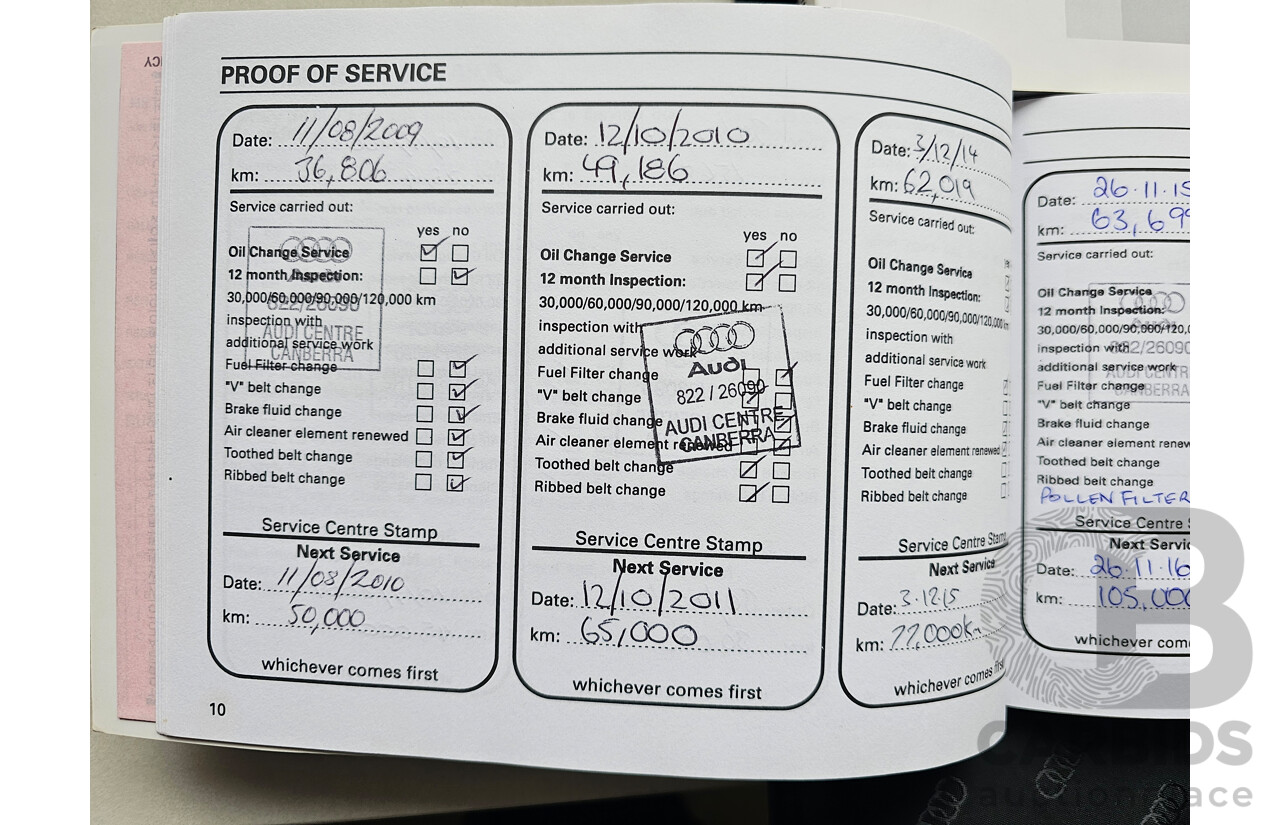 PROOF OF SERVICE
Date: 11/08/2009
km: 36,806
Service carried out:
yes no
Oil Change Service
12 month Inspection:
30,000/60,000/90,000/120,000 km
inspection with
additional service work
Fuel Filter change
"V" belt change
Brake fluid change
Air cleaner element renewed
Toothed belt change
Ribbed belt change
822/26090
AUDI CENTRE
CANBERRA
Service Centre Stamp
Next Service
Date: 11/08/2010
km: 50,000
whichever comes first
10
Date: 12/10/2010
km: 49,186
Service carried out:
yes no
Oil Change Service
12 month Inspection:
30,000/60,000/90,000/120,000 km
inspection with
additional service work
Fuel Filter change
"V" belt change
Brake fluid change
Air cleaner element renewed
Toothed belt change
Ribbed belt change
Audi
822 / 26090
AUDI CENTRE
CANBERRA
Service Centre Stamp
Next Service
Date: 12/10/2011
km: 65,000
whichever comes first
Date: 3/12/14
km: 62,019
Service carried out:
Oil Change Service
12 month Inspection:
30,000/60,000/90,000/120,000 km
inspection with
additional service work
Fuel Filter change
"V" belt change
Brake fluid change
Air cleaner element renewed
Toothed belt change
Ribbed belt change
Service Centre Stamp
Next Service
Date: 3.12.15
km: 77,000km
whichever comes first
Date: 26.11.15
km: 63,699
Service carried out:
Oil Change Service
12 month Inspection:
30,000/60,000/90,000/120,0
inspection with
additional service work
Fuel Filter change
"V" belt change
Brake fluid change
Air cleaner element renew
Toothed belt change
Ribbed belt change
POLLEN FILTER
822/26090
AUDI CENTR
CANBERRA
Service Centre S
Next Servic
Date: 26.11.16
km: 105,000
whichever com
CARBIDS